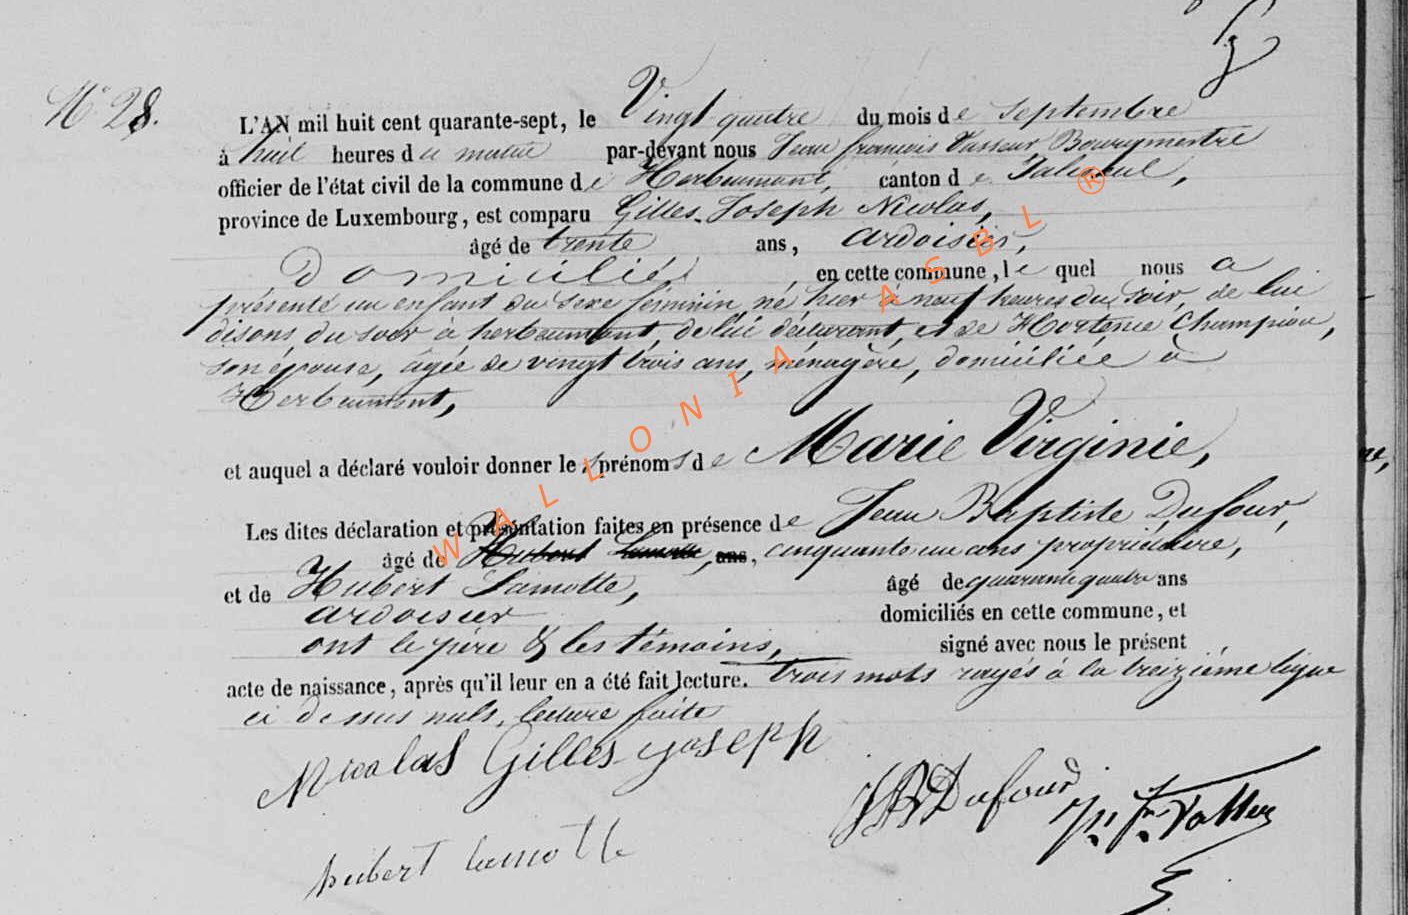 N° 28.
L'AN mil huit cent quarante-sept, le Vingt quatre du mois de Septembre
à huit heures du matin par-devant nous Jean françois Vasseur Bourgmestre
officier de l'état civil de la commune de Herbeumont, canton de Paliseul,
province de Luxembourg, est comparu Gilles Joseph Nicolas,
âgé de trente ans, ardoisier,
Domicilié en cette commune, le quel nous a
présenté un enfant du sexe féminin, né hier à neuf heures du soir, de lui
disons du soir à herbeumont, de lui déclarant, et de Hortense Champion,
son épouse, âgée de vingt trois ans, ménagère, domiciliée à
Herbeumont,
et auquel a déclaré vouloir donner les prénoms de Marie Virginie,
Les dites déclaration et présentation faites en présence de Jean Baptiste Dufour,
âgé de Hubert Lamotte, ans, cinquante un ans propriétaire,
et de Hubert Lamotte, âgé de quarante quatre ans
ardoisier domiciliés en cette commune, et
ont le père & les témoins, signé avec nous le présent
acte de naissance, après qu'il leur en a été fait lecture. trois mots rayés à la treizième ligne
ci dessus nuls, lecture faite
Nicolas Gilles Joseph
JB Dufour
hubert lamotte
WALLONIA ASBL ®